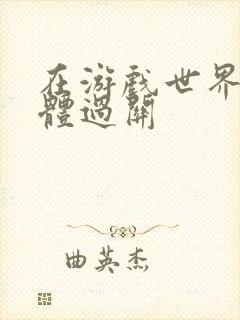 在游戲世界
體過關
曲英杰